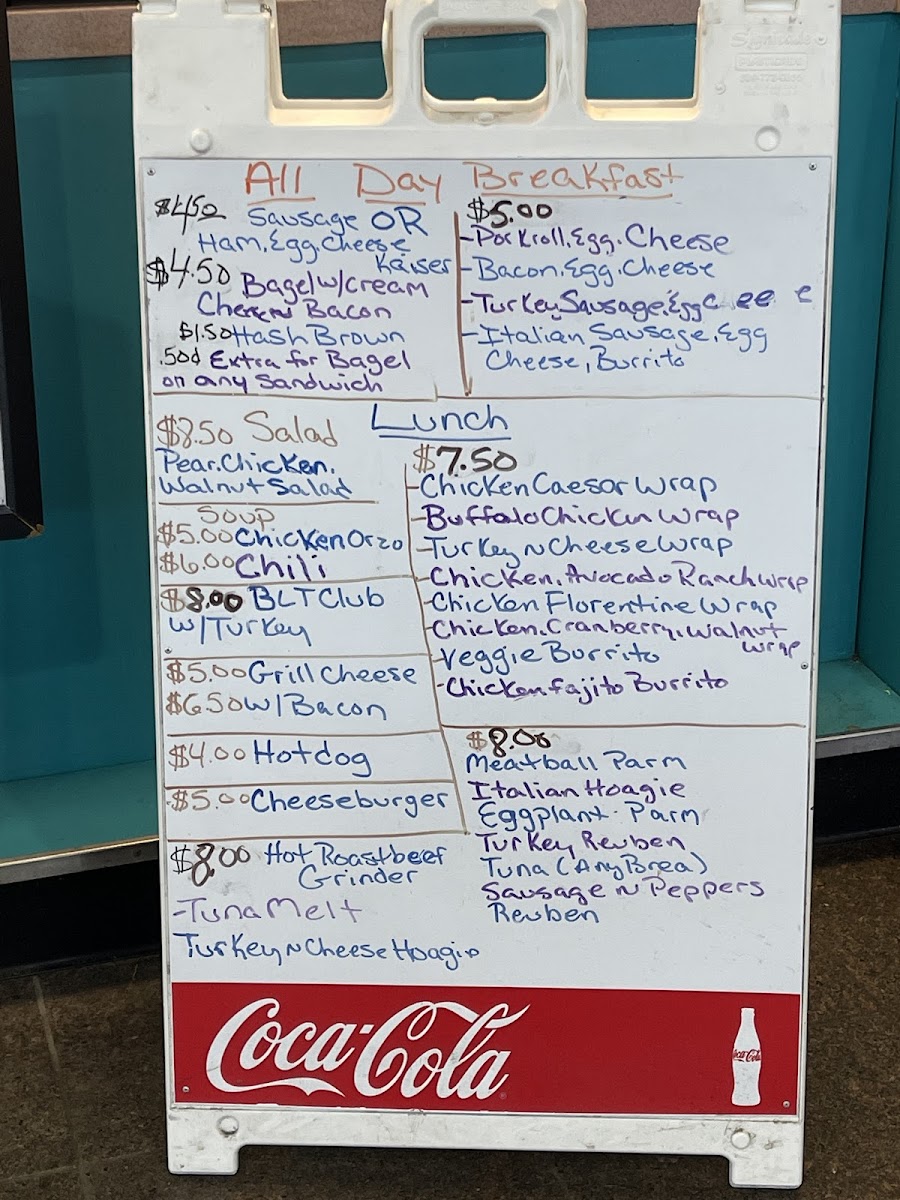 All Day Breakfast
$4.50 Sausage OR
Ham, Egg, Cheese
Kaiser
$4.50 Bagel w/cream
Cheese Bacon
$1.50 Hash Brown
.50¢ Extra for Bagel
on any Sandwich
$5.00
-Porkroll, Egg, Cheese
-Bacon, Egg, Cheese
-Turkey Sausage, Egg C ee e
-Italian Sausage, Egg
Cheese, Burrito
Lunch
$8.50 Salad
Pear, Chicken,
Walnut Salad
Soup
$5.00 Chicken Orzo
$6.00 Chili
$8.00 BLT Club
w/Turkey
$5.00 Grill Cheese
$6.50 w/Bacon
$4.00 Hotdog
$5.00 Cheeseburger
$8.00 Hot Roastbeef
Grinder
-Tuna Melt
Turkey n Cheese Hoagie
$7.50
-Chicken Caesar Wrap
-Buffalo Chicken Wrap
-Turkey n Cheese Wrap
-Chicken, Avocado Ranch wrap
-Chicken Florentine Wrap
-Chicken, Cranberry, Walnut
wrap
-Veggie Burrito
-Chicken fajito Burrito
$8.00
Meatball Parm
Italian Hoagie
Eggplant Parm
Turkey Reuben
Tuna (Any Brea)
Sausage n Peppers
Reuben
Coca-Cola
Coca-Cola